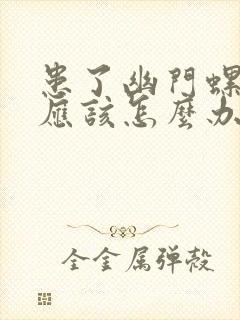 患了幽門螺
應該怎麼办
全金属弹殼